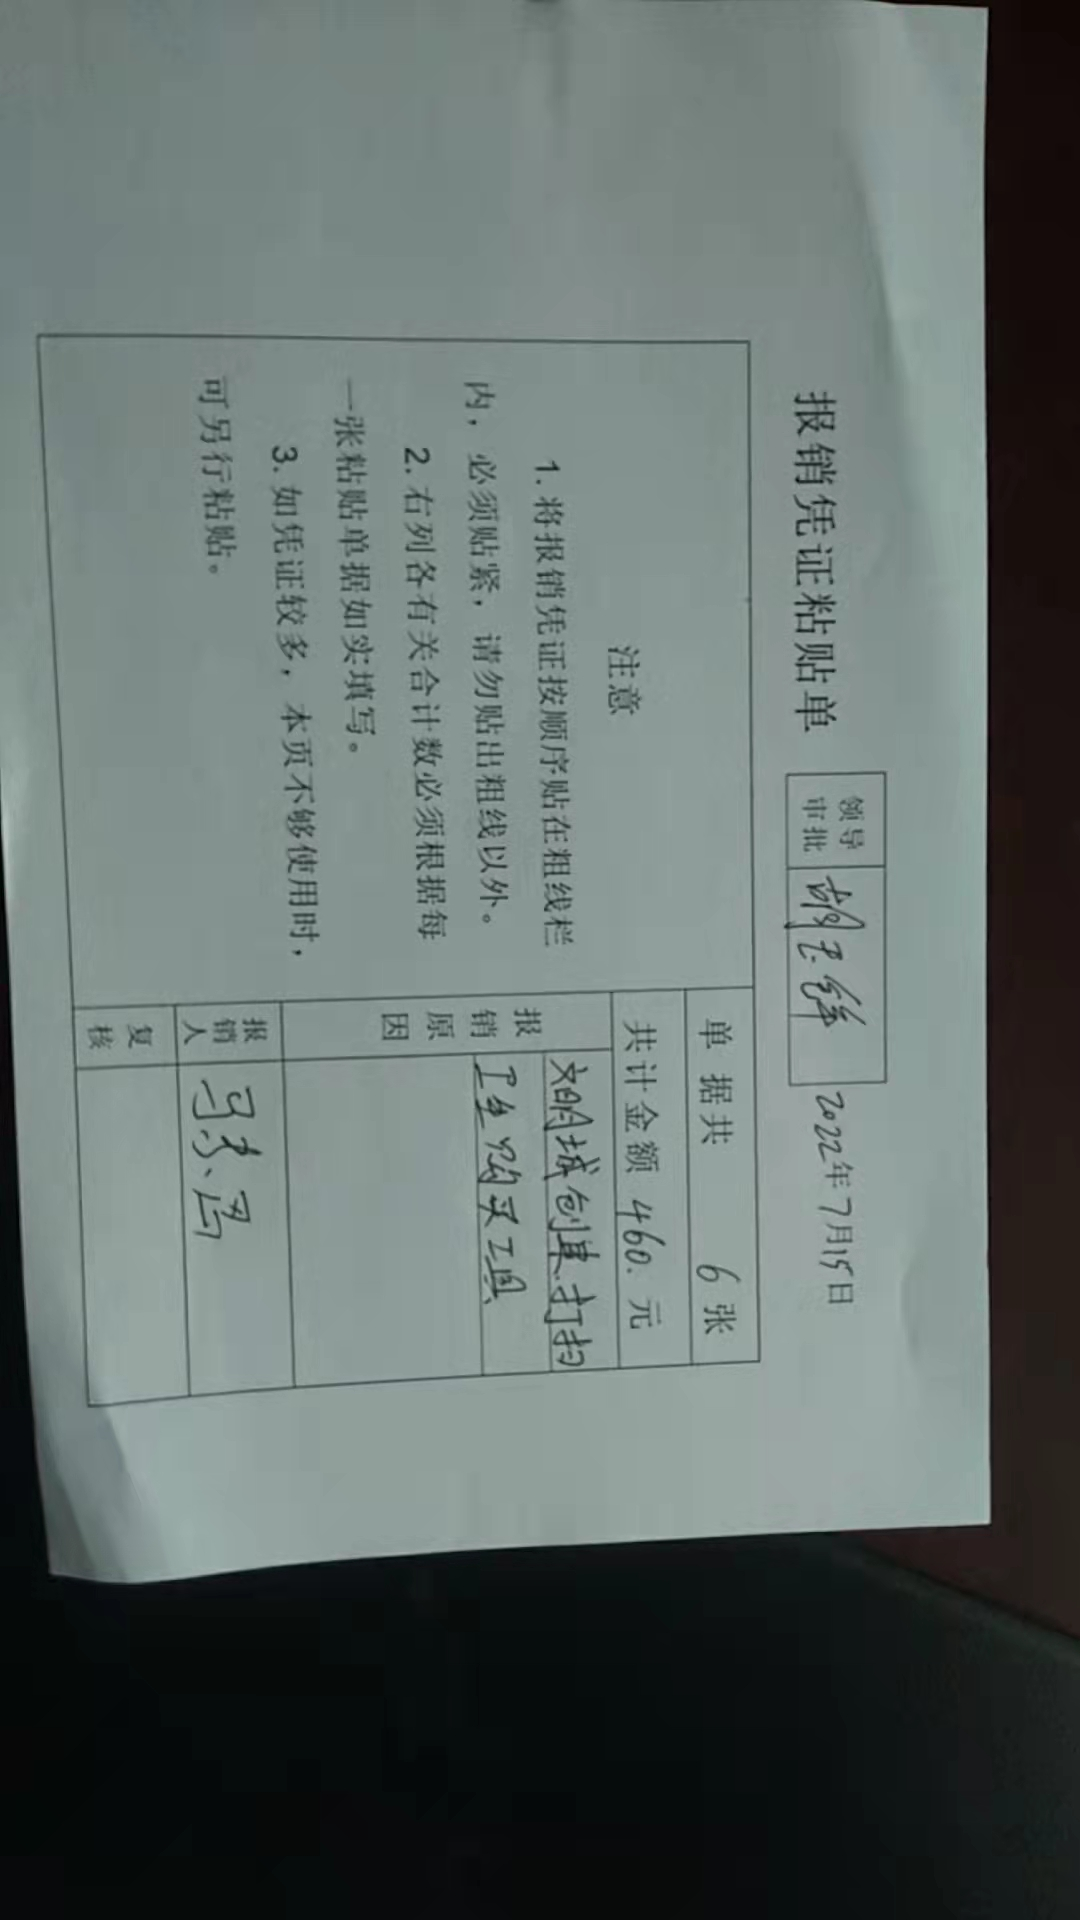 报销凭证粘贴单
领导
审批
2022年7月15日
注意
1.将报销凭证按顺序贴在粗线栏
内，必须贴紧，请勿贴出粗线以外。
2.右列各有关合计数必须根据每
一张粘贴单据如实填写。
3.如凭证较多，本页不够使用时，
可另行粘贴。
单据共 6 张
共计金额 460. 元
报销原因
文明城创建.打扫
卫生购买工具
报销人
复核